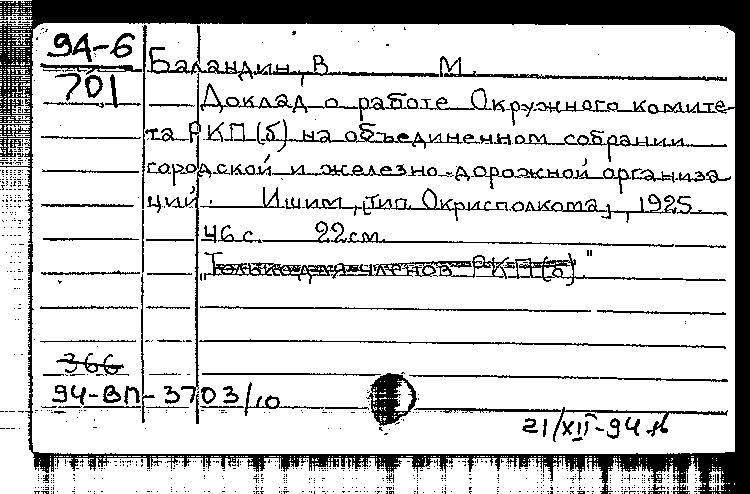 94-6
701
Баландин, В. М.
Доклад о работе Окружного комите-
та РКП(б) на объединенном собрании
городской и железно-дорожной организа
ций. Ишим, [тип. Окрисполкома], 1925.
46 с. 22 см.
"Только для членов РКП(б)"
366
94-ВП-3703/10
21/XII-94